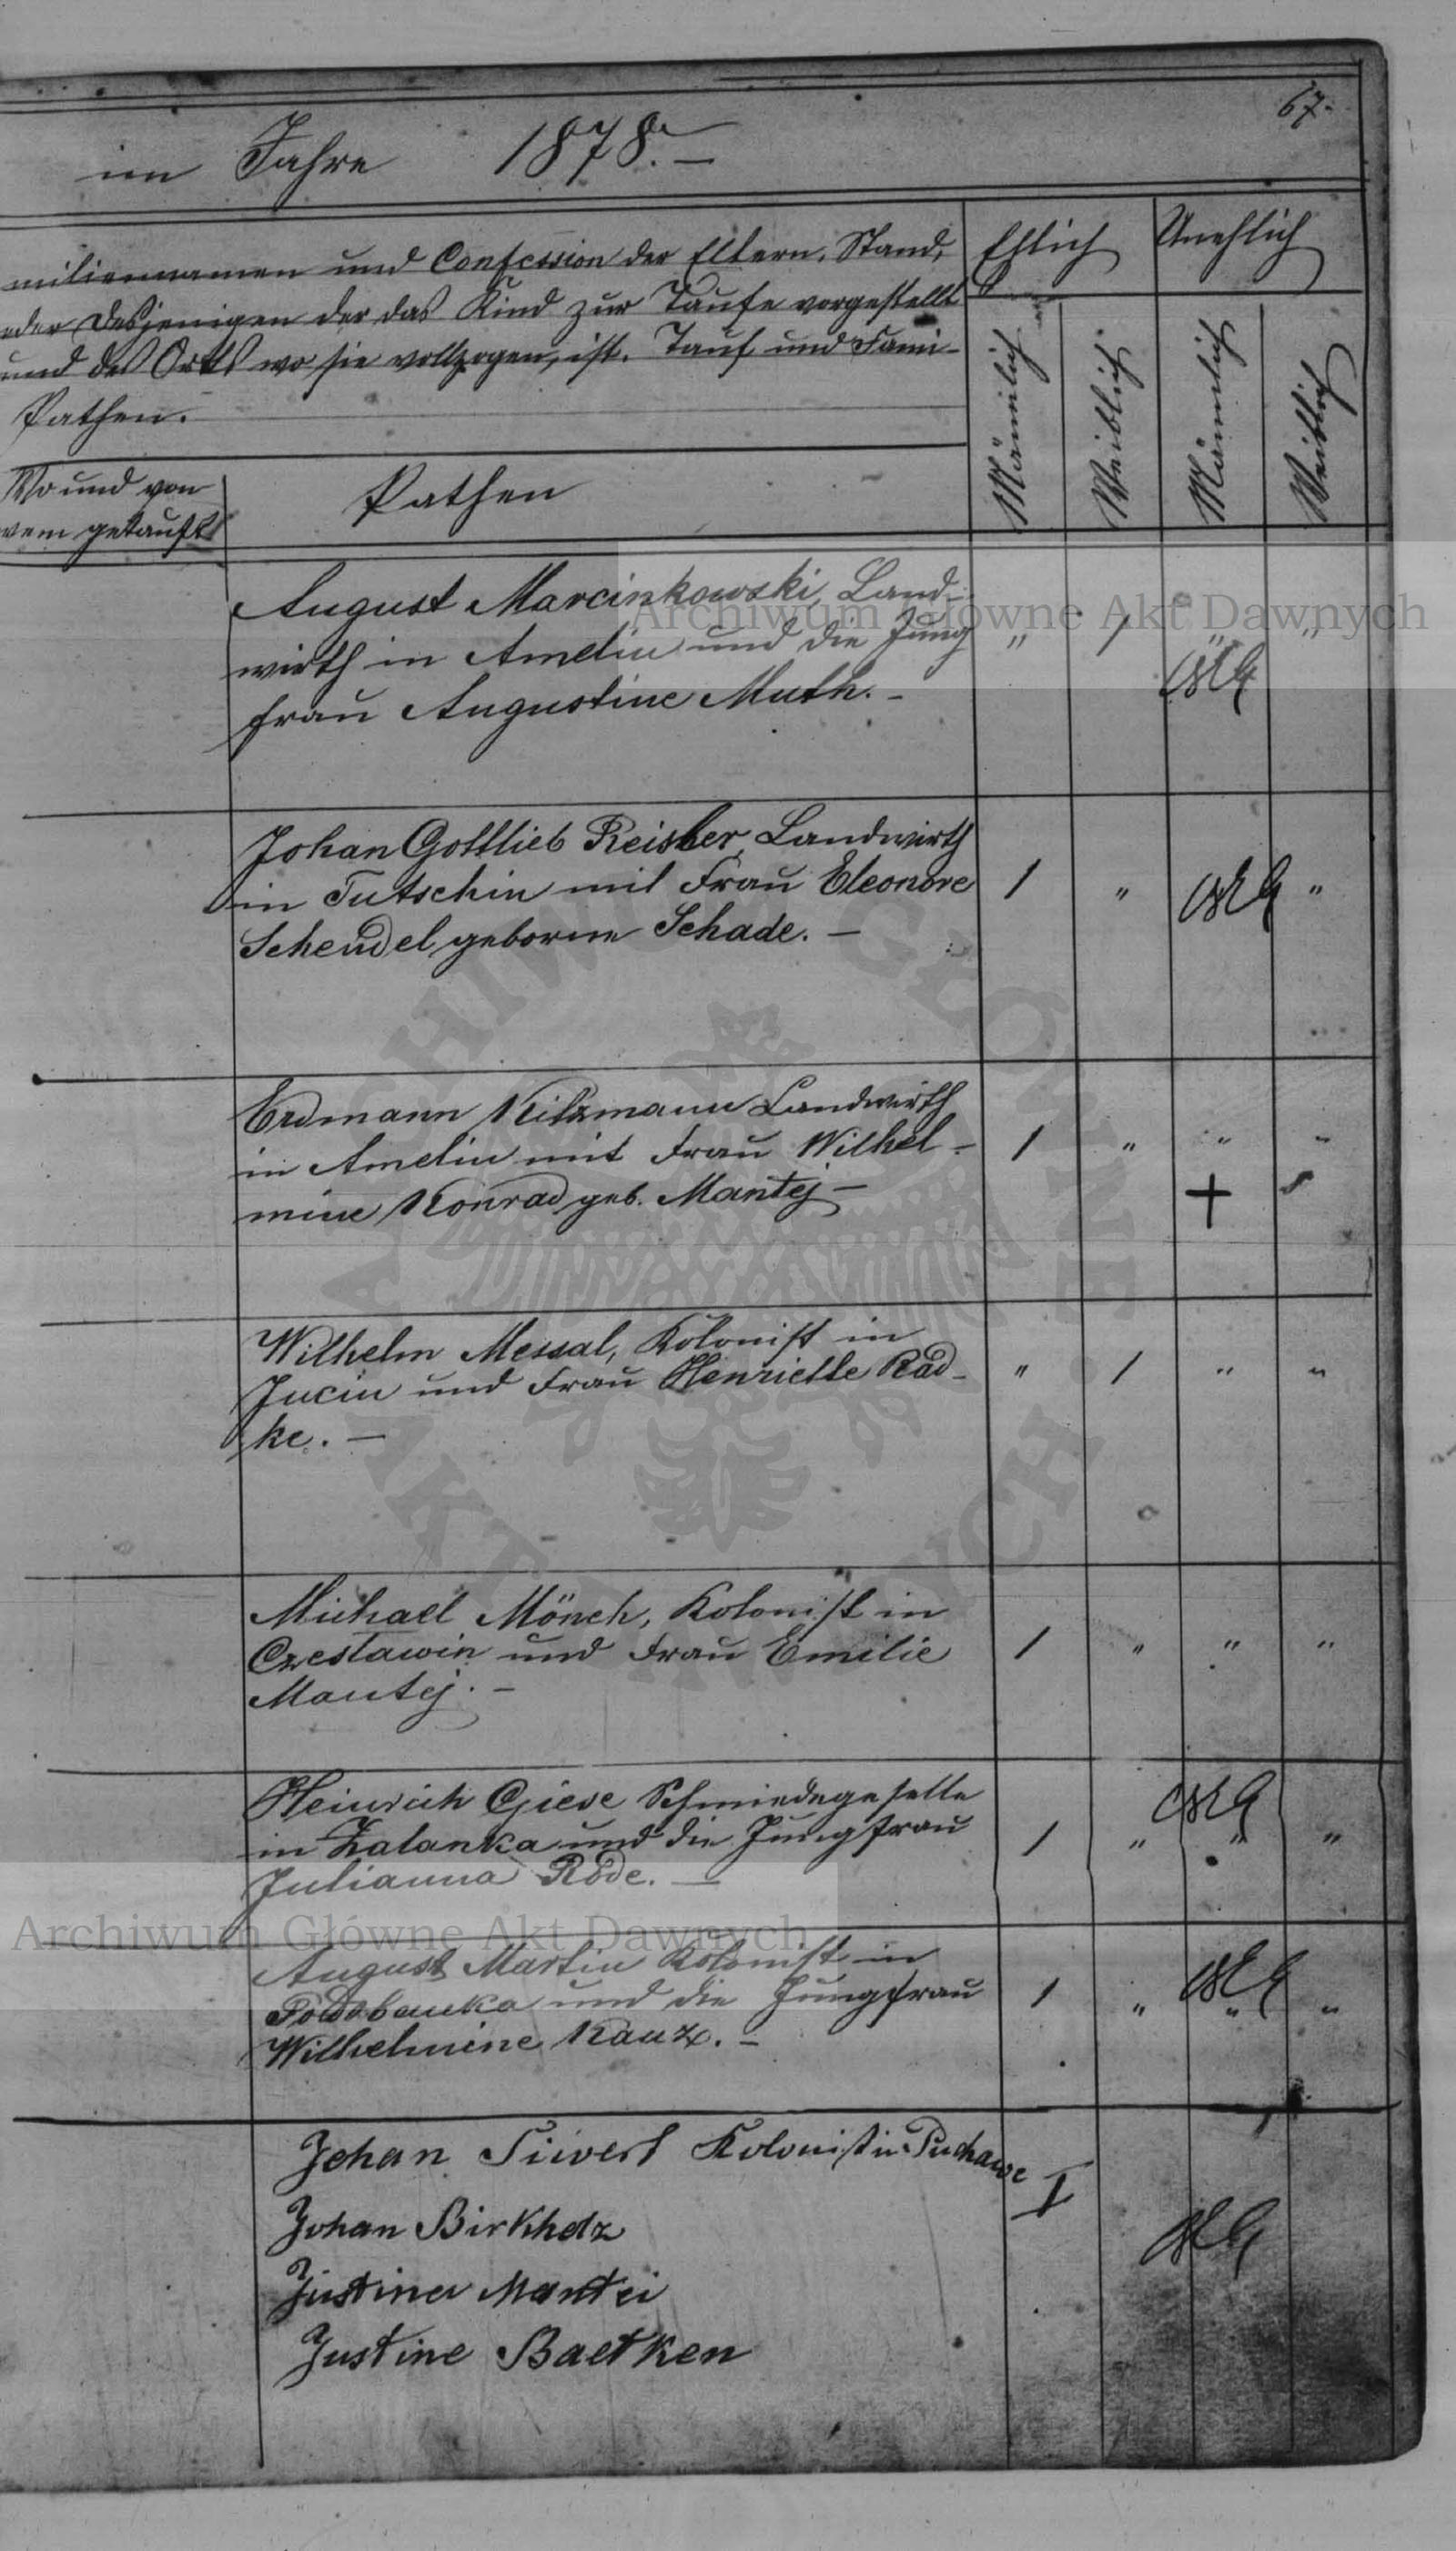 67.
im Jahre 1878. —
miliennamen und Confession der Eltern, Stand,
oder Desjenigen der das Kind zur Taufe vorgestellt
und des Orts wo sie vollzogen, ist. Tauf und Fami-
Pathen.
Ehlich Unehlich
Männlich Weiblich Männlich Weiblich
Wo und von
wem getauft
Pathen
August Marcinkowski, Land- " 1 " "
wirth in Amelin und die Jung
frau Augustine Muth. -
Johan Gottlieb Reisber, Landwirth
in Tutschin mit Frau Eleonore 1 " "
Schendel geborne Schade. —
Erdmann Kilzmann Landwirth
in Amelin mit Frau Wilhel- 1 " " "
mine Konrad geb. Mantej —
Wilhelm Messal, Kolonist in
Jucin und Frau Henriette Rad- " 1 " "
ke. —
Michael Mönch, Kolonist in
Czestawin und Frau Emilie 1 " " "
Mantej. -
Heinrich Giese Schmiedegeselle
in Zalanka und die Jungfrau 1 " " "
Julianna Rode. —
August Martin Kolonist in
und die Jungfrau 1 " " "
Wilhelmine Kanz. -
Johan Sievert Kolonist in Puchawe 1
Johan Birkholz
Justina Mantei
Justine Baetken
Archiwum Główne Akt Dawnych
Archiwum Główne Akt Dawnych
ARCHIWUM GŁÓWNE AKT DAWNYCH